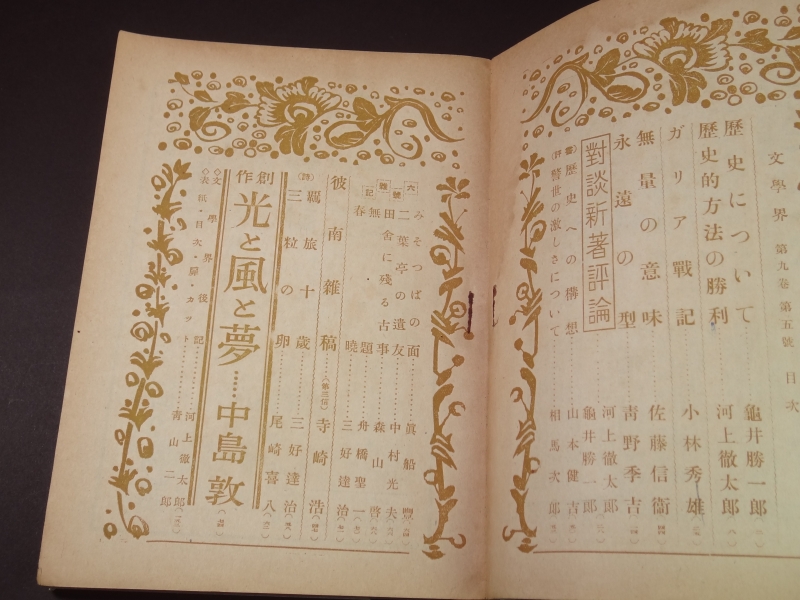 文學界 第九卷 第五號 目次
歷史について 龜井勝一郎
歷史的方法の勝利 河上徹太郎
ガリア戰記 小林秀雄
無量の意味 佐藤信衞
永遠の型 靑野季吉
對談新著評論 河上徹太郎 龜井勝一郎
歷史への構想 山本健吉
警世の激しさについて 相馬次郎
六號雜記
みそつぱの面 眞船豐
二葉亭の遺友 中村光夫
田舍に殘る古事 森山啓
無題 舟橋聖一
春曉 三好達治
彼南雜稿 寺崎浩
(詩)
羈旅十歲 三好達治
三粒の卵 尾崎喜八
創作
光と風と夢 中島敦
◇文學界後記 河上徹太郎
◇表紙・目次・扉・カット 靑山二郎